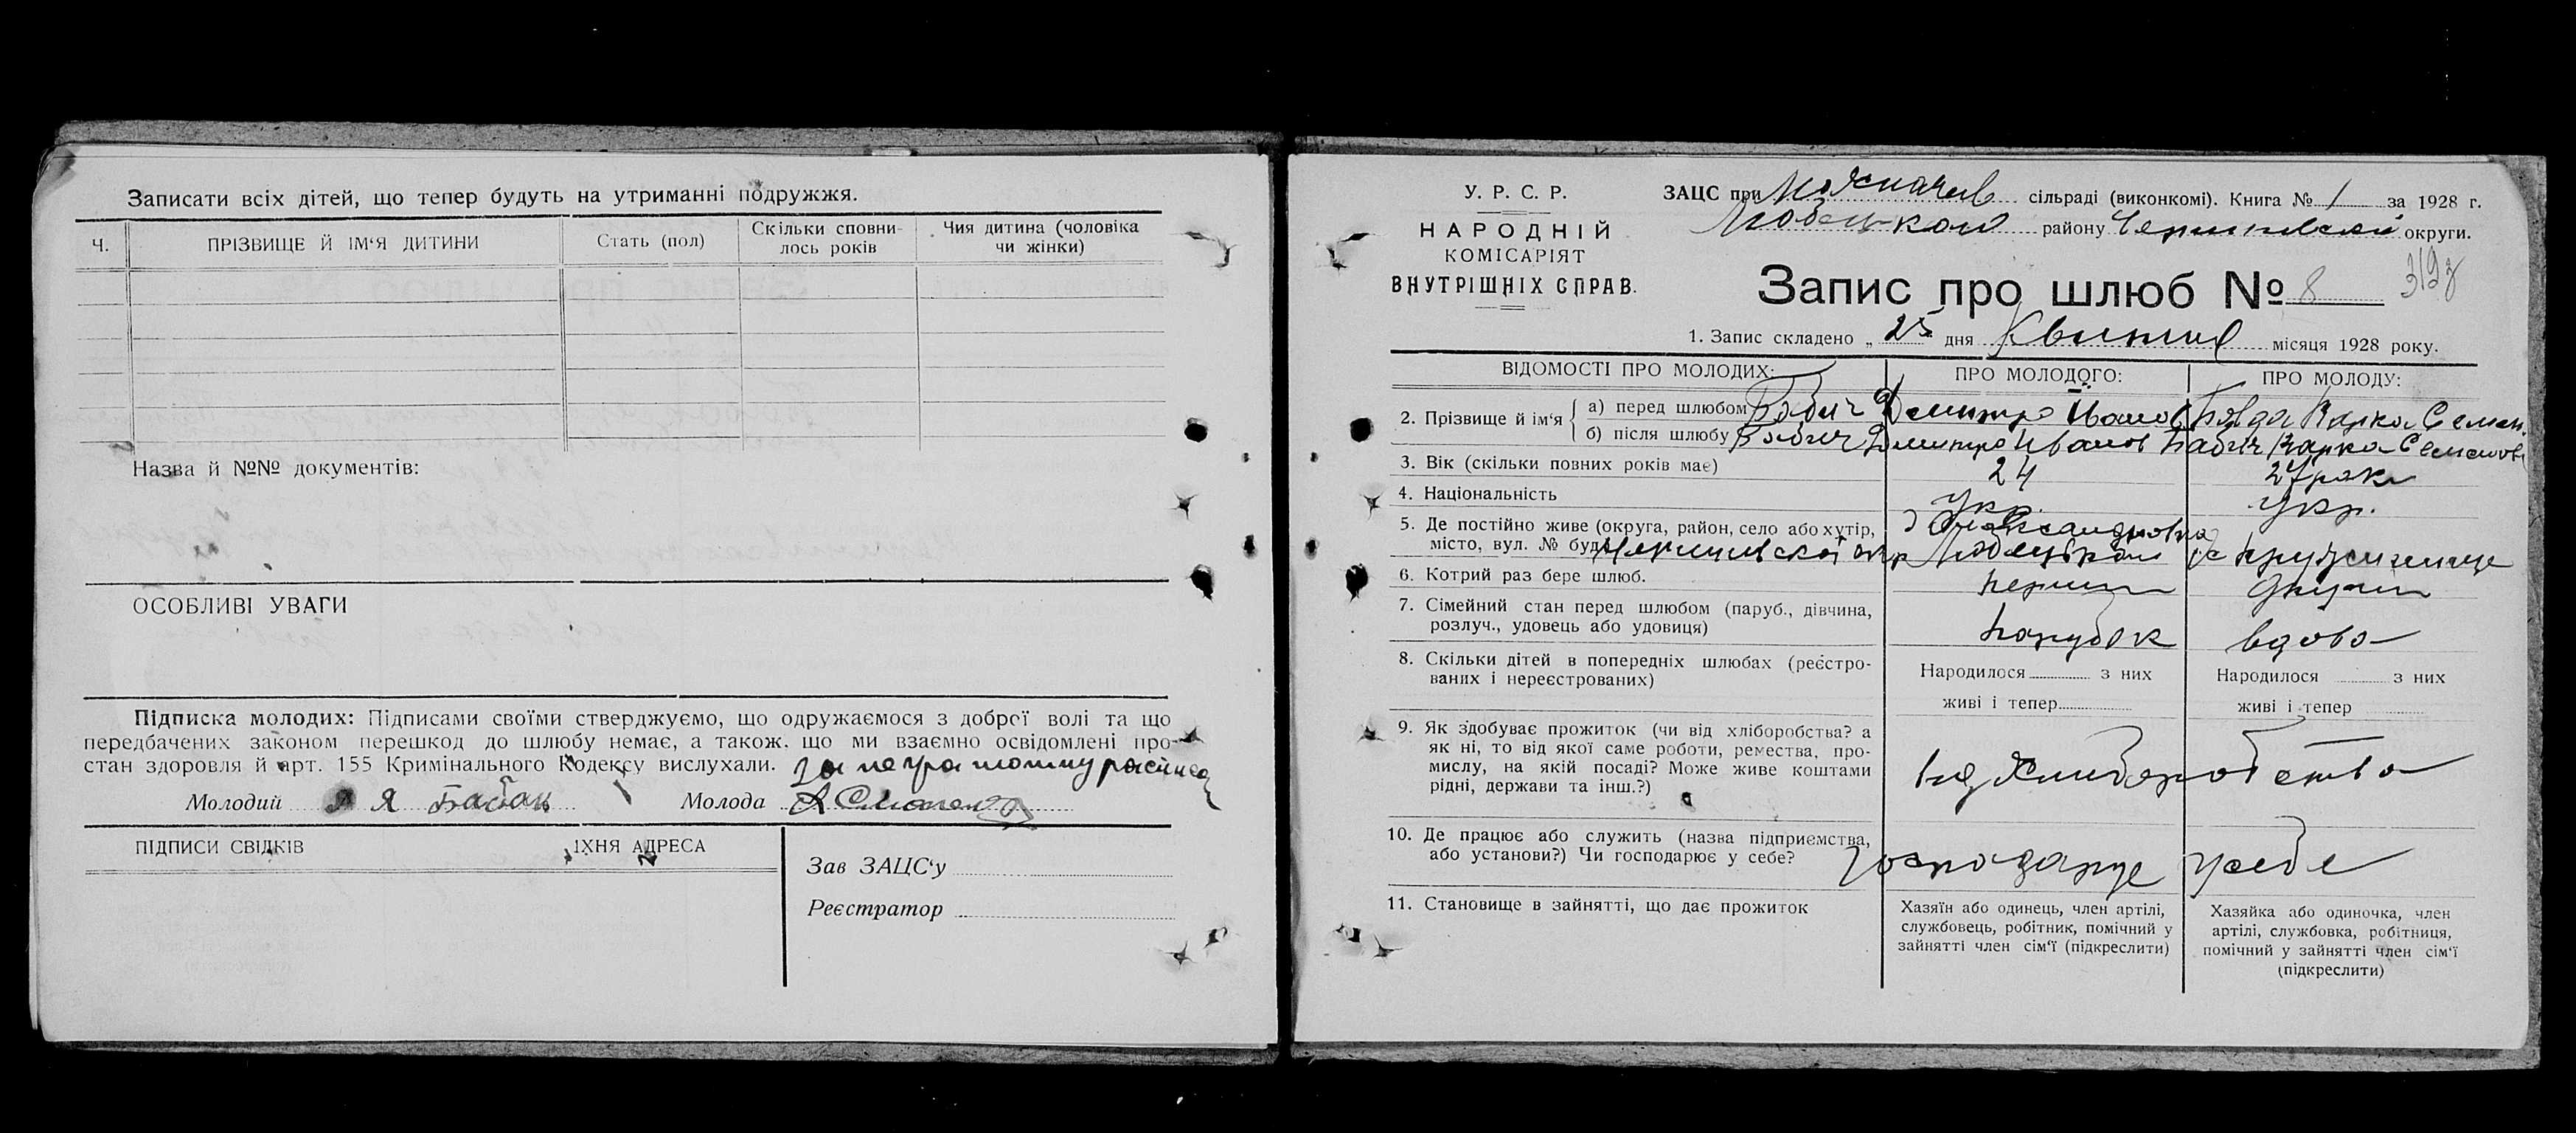 Записати всіх дітей, що тепер будуть на утриманні подружжя.
Ч.
ПРІЗВИЩЕ Й ІМ‘Я ДИТИНИ
Стать (пол)
Скільки сповни-
лось років
Чия дитина (чоловіка
чи жінки)
Назва й №№ документів:
ОСОБЛИВІ УВАГИ
Підписка молодих: Підписами своїми стверджуємо, що одружаємося з доброї волі та що
передбачених законом перешкод до шлюбу немає, а також. що ми взаємно освідомлені про-
стан здоровля й арт. 155 Кримінального Кодексу вислухали.
Молодий Я
Молода
ПІДПИСИ СВІДКІВ
ЇХНЯ АДРЕСА
Зав ЗАЦС‘у
Реєстратор
У. Р. С. Р.
НАРОДНІЙ
КОМІСАРІЯТ
ВНУТРІШНІХ СПРАВ.
ЗАЦС при сільраді (виконкомі). Книга № 1 за 1928 г.
Любецкого району округи.
Запис про шлюб № 8
1. Запис складено „ 25 “ дня місяця 1928 року.
ВІДОМОСТІ ПРО МОЛОДИХ:
ПРО МОЛОДОГО:
ПРО МОЛОДУ:
2. Прізвище й ім‘я
а) перед шлюбом Бабич Дмитро Іванов Варка Семен.
б) після шлюбу Бабич Дмитро Иванов Бабич Варка Семенов
3. Вік (скільки повних років має)
24
27 рок
4. Національність
Укр.
Укр.
5. Де постійно живе (округа, район, село або хутір,
місто, вул. № буд.
6. Котрий раз бере шлюб.
перший
другий
7. Сімейний стан перед шлюбом (паруб., дівчина,
розлуч., удовець або удовиця)
парубок
вдова
8. Скільки дітей в попередніх шлюбах (реєстро-
ваних і нереєстрованих)
Народилося з них
живі і тепер
Народилося з них
живі і тепер
9. Як здобуває прожиток (чи від хліборобства? а
як ні, то від якої саме роботи, ремества, про-
мислу, на якій посаді? Може живе коштами
рідні, держави та інш.?)
10. Де працює або служить (назва підприємства,
або установи?) Чи господарює у себе?
господарує у себе
11. Становище в зайнятті, що дає прожиток
Хазяїн або одинець, член артілі,
службовець, робітник, помічний у
зайнятті член сім‘ї (підкреслити)
Хазяйка або одиночка, член
артілі, службовка, робітниця,
помічний у зайнятті член сім‘ї
(підкреслити)